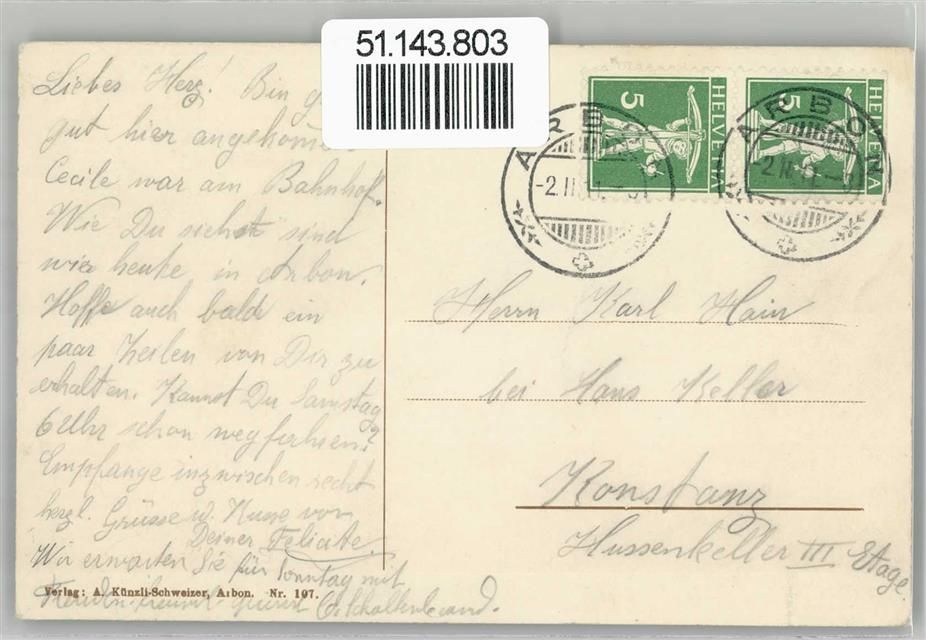 51.143.803
Liebes Herz! Bin
gut hier angekom
Cecile war am Bahnhof.
Wie Du siehst sind
wir heute in Arbon.
Hoffe auch bald ein
paar Zeilen von Dir zu
erhalten. Kannst Du Samstag
6 Uhr schon wegfahren?
Empfange inzwischen recht
herzl. Grüsse u. Küsse von
Deiner Felicite.
Wir erwarten Sie für Sonntag mit
Verlag: A. Künzli-Schweizer, Arbon. Nr. 107.
HELVETIA
5
HELVETIA
5
ARBON
-2.II.
ARBON
-2.II.
Herrn Karl Hain
bei Hans Keller
Konstanz
Hussenkeller III Etage